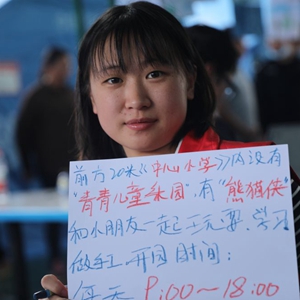 前方20米《中心小学》内设有
"青青儿童乐园"有"熊猫侠"
和小朋友一起玩耍、学习
做手工 开园时间：
每天 9:00～18:00